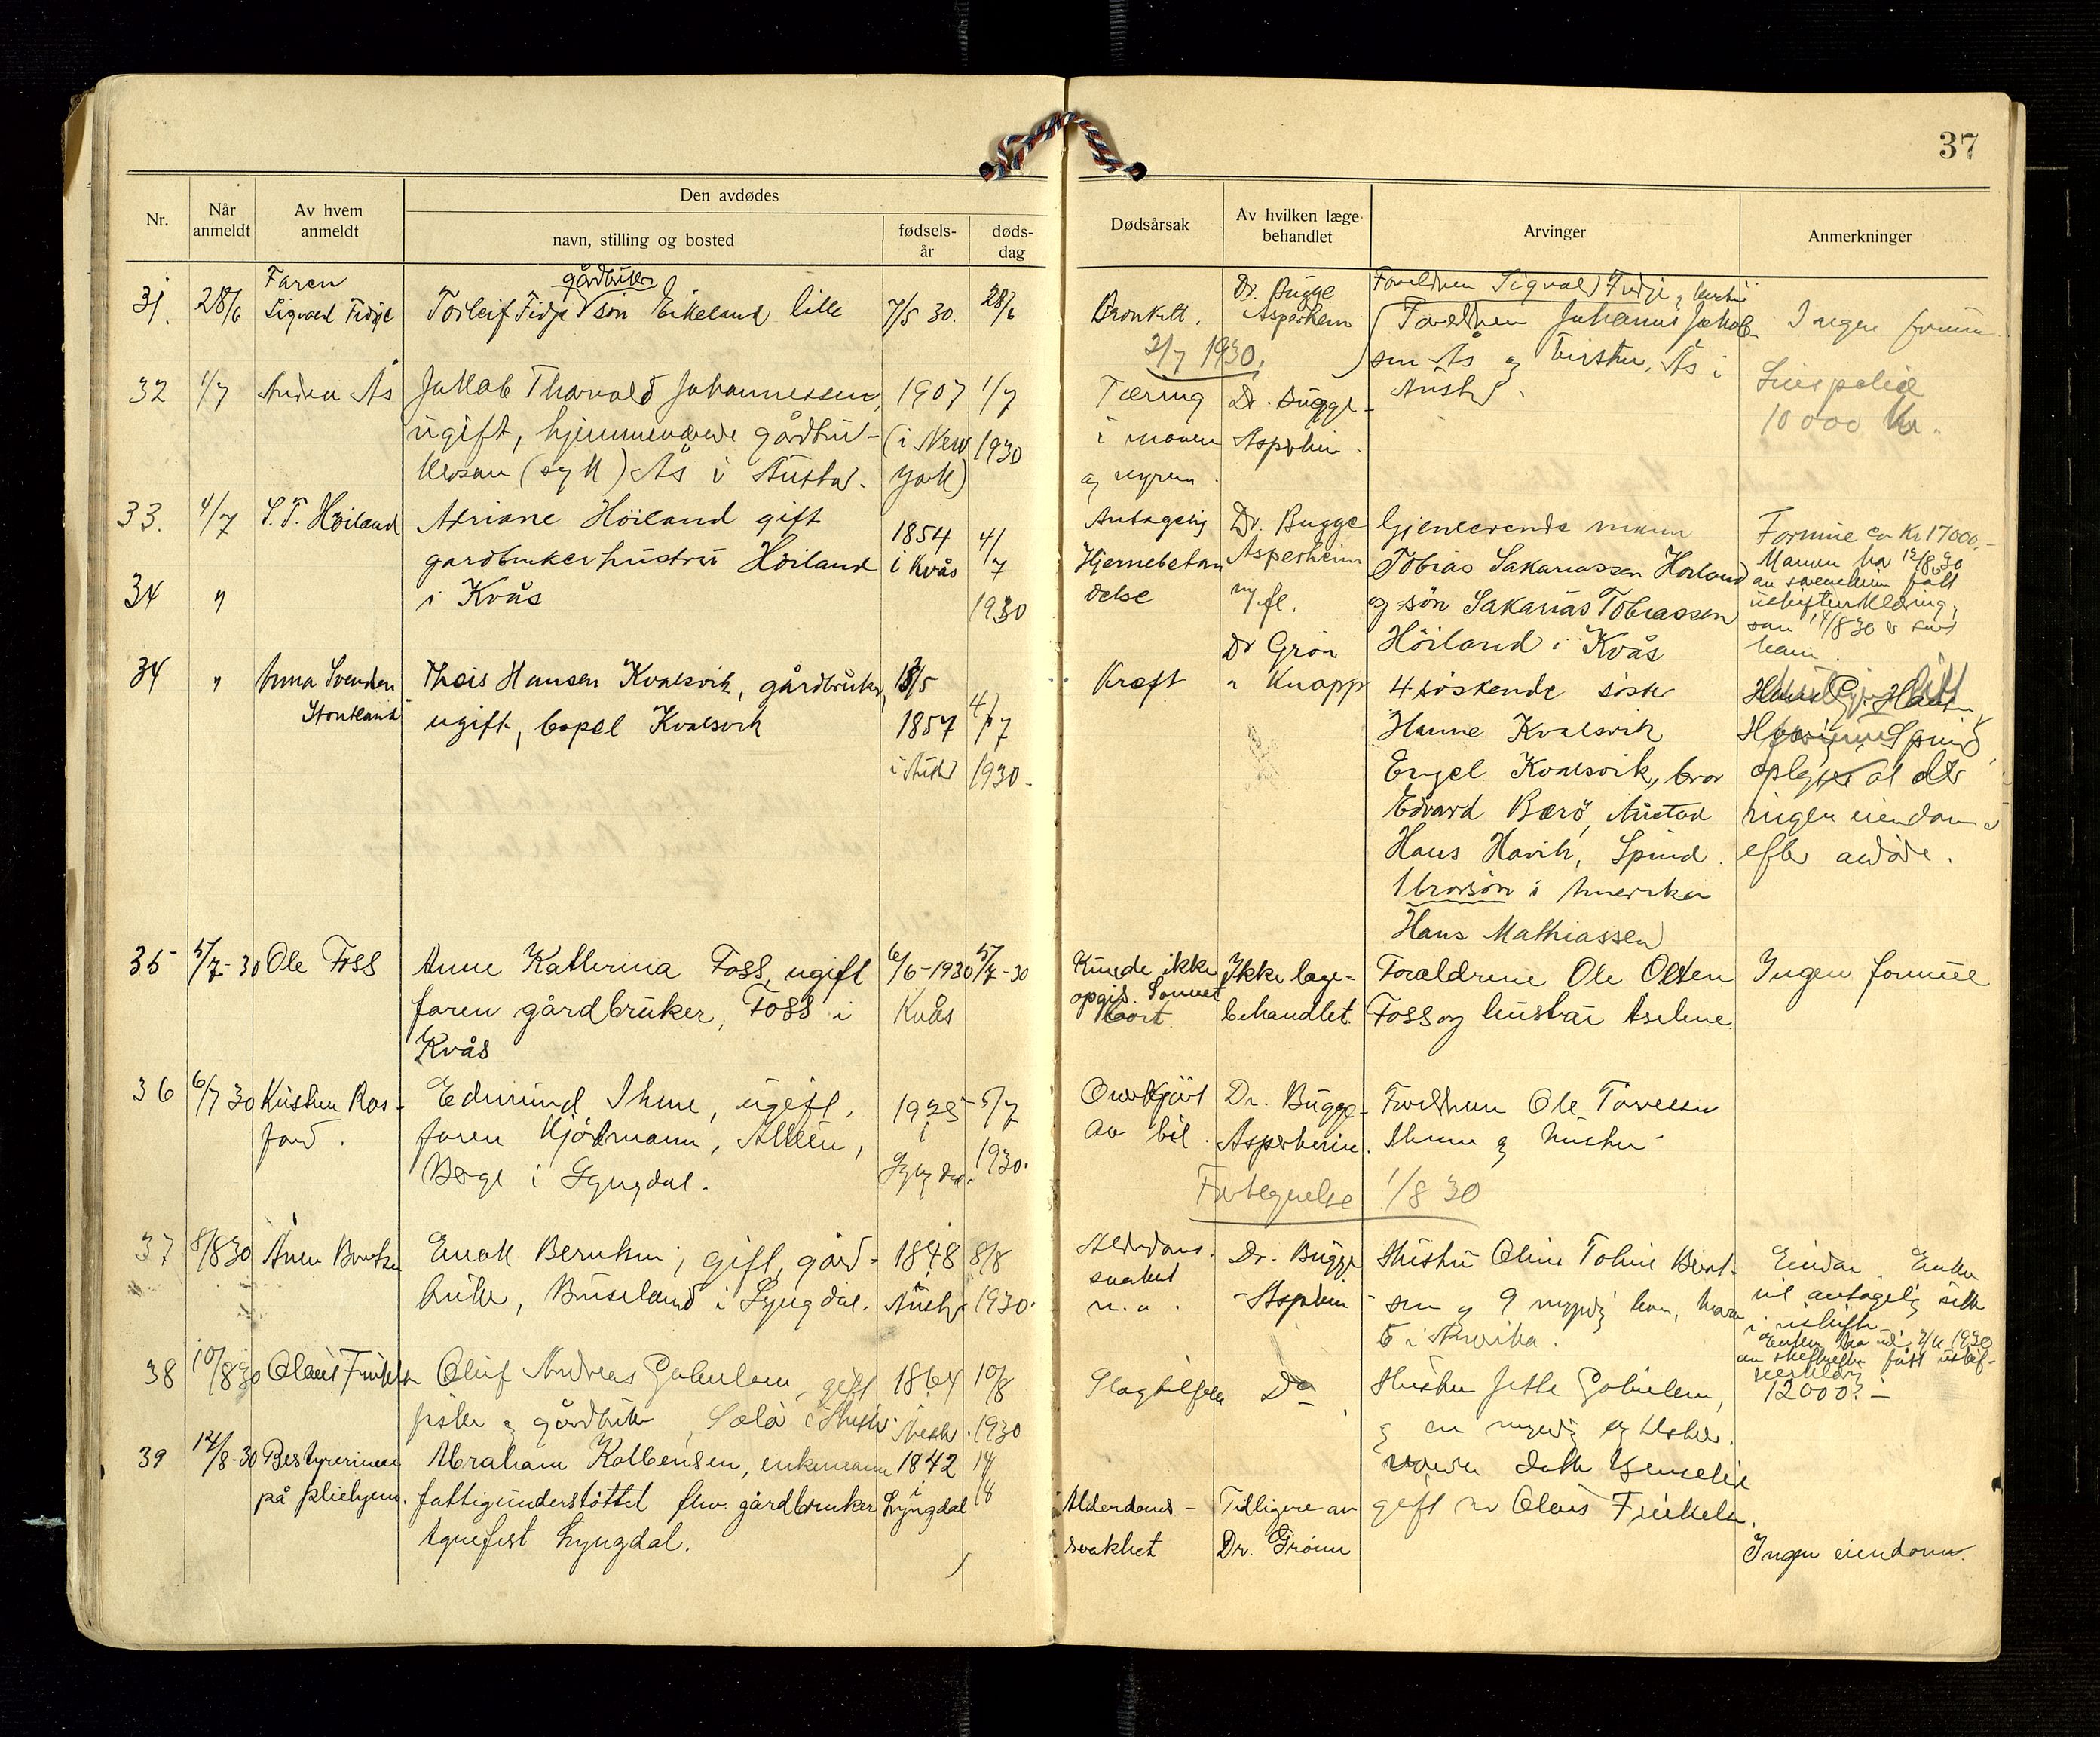 37
Nr.
Når anmeldt
Av hvem anmeldt
Den avdødes
navn, stilling og bosted
fødsels-år
døds-dag
Dødsårsak
Av hvilken læge behandlet
Arvinger
Anmerkninger
31. 28/6
Faren
Sigvald Fidje
gårdbruker
Torleif Fidje søn Eikeland lille
7/5 30.
28/6
Bronkitt.
Dr. Bugge
Asperheim
Foreldrene Sigvald Fidje og hustru
Ingen formue
2/7 1930.
32 1/7 Andrea Ås
Jakob Thorvald Johannessen,
ugift, hjemmeværende gårdbru-
kersøn (syk) Ås i Austad.
1907
(i New
York)
1/7
1930
Tæring
i maven
og nyren.
Dr. Bugge-
Asperheim.
Foreldrene Johannes Jakob-
sen Ås og hustru, Ås i
Austad.
Livspolice
10000 Kr.
33. 4/7 S. T. Höiland
Adriane Höiland gift
gardbrukerhustru Höiland
i Kvås
1854
i Kvås
4/7
1930
Antagelig
Hjernebetæn
delse
Dr. Bugge
Asperheim
og fl.
Dr Grøn
Gjenlevende mann
Tobias Sakariassen Höiland
og søn Sakarias Tobiassen
Höiland i Kvås
Formue ca Kr 17000.-
Mannen har 12/8 30
av sorenskriveren fått
uskifteerklæring,
som 14/8 30 er
ham.
34 "
34 "
Anna Svendsen
Theis Hansen Kvalsvik, gårdbruker,
ugift, bopel Kvalsvik
1857
i Austad
4/7
1930.
Kræft
" Knapp
4 søskende søster
Hanne Kvalsvik
Engel Kvalsvik, bror
Edvard Bærø, Austad
Hans Havik, Spind.
1 brorsøn i Amerika
Hans Mathiassen
Spind
oplyser at der
ingen eiendom er
efter avdøde.
35 5/7-30 Ole Foss
Anne Katherina Foss, ugift
faren gårdbruker, Foss i
Kvås
6/6-1930
Kvås
5/7-30
Kunde ikke
opgis. Sovnet
bort.
Ikke læge-
behandlet.
Forældrene Ole Olsen
Foss og hustru Aselene.
Ingen formue
36 6/7 30 Kristen Ros-
fjord.
Edmund Ihme, ugift,
faren kjørmann, Alleen,
Berge i Lyngdal.
1925
i
Lyngdal.
5/7
1930.
Overkjørt
av bil.
Dr. Bugge-
Asperheim.
Foreldrene Ole Tørressen
Ihme og hustru
Fortegnelse 1/8 30
37 8/8 30 Anen Berntsen
Enok Berntsen, gift, gård-
bruker, Buseland i Lyngdal.
1848
i
Austad
8/8
1930.
Alderdoms-
svakhet
m. v.
Dr. Bugge
-Asperheim
Hustru Oline Tobine Bernt-
sen og 9 myndig barn, hvorav
5 i Amerika.
Eiendom. Enken
vil antagelig sitte
i uskifte.
Enken har 2/11 1930
av skifteretten fått
38 10/8 30 Olaus Fuskeland
Oluf Andreas Gabrielsen, gift
fisker og gårdbruker, Sælør i Austad.
1864
i
Austad.
10/8
1930
Slagtilfelle
Do
Hustru Jette Gabrielsen,
og en myndig og
datter
gift m Olaus
12000? -
39 14/8-30 Bestyrerinnen
på pleiehjem.
Abraham Kolbensen, enkemann
fattigunderstøttet fhv. gårdbruker
Agnefest Lyngdal.
1842
i
Lyngdal
14/8
Alderdoms-
svakhet
Tidligere av
Dr. Grönn
Ingen eiendom.